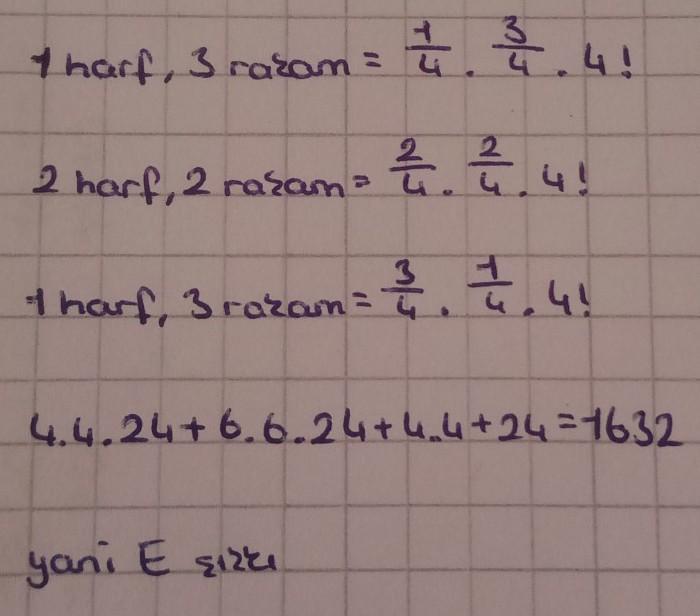 1 harf, 3 rakam = 1/4 . 3/4 . 4!
2 harf, 2 rakam = 2/4 . 2/4 . 4!
1 harf, 3 rakam = 3/4 . 1/4 . 4!
4.4.24 + 6.6.24 + 4.4 + 24 = 1632
yani E şıkkı